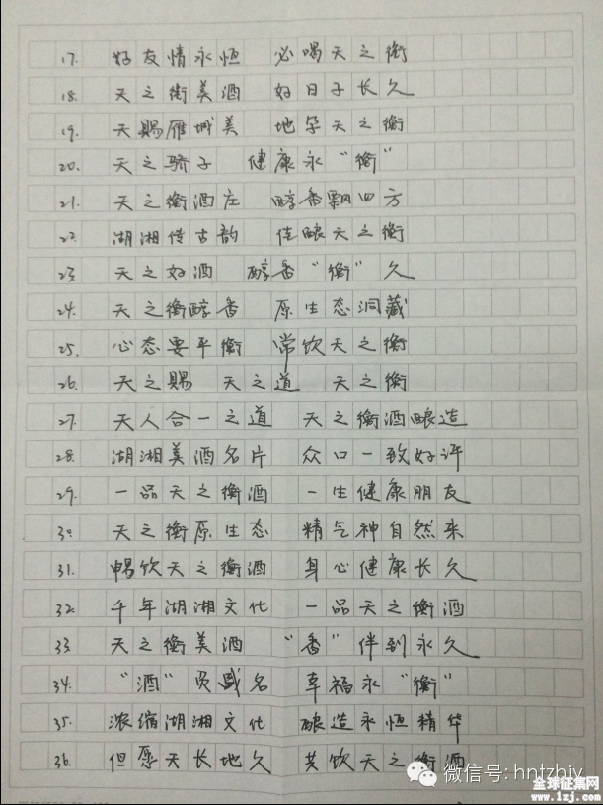 17. 好友情永恒 必喝天之衡
18. 天之衡美酒 好日子长久
19. 天赐雁城美 地孕天之衡
20. 天之骄子 健康永“衡”
21. 天之衡酒庄 醇香飘四方
22. 湖湘传古韵 佳酿天之衡
23 天之好酒 醇香“衡”久
24. 天之衡醇香 原生态洞藏
25. 心态要平衡 常饮天之衡
26. 天之赐 天之道 天之衡
27. 天人合一之道 天之衡酒酿造
28. 湖湘美酒名片 众口一致好评
29. 一品天之衡酒 一生健康朋友
30 天之衡原生态 精气神自然来
31. 畅饮天之衡酒 身心健康长久
32. 千年湖湘文化 一品天之衡酒
33 天之衡美酒 “香”伴到永久
34. “酒”负盛名 幸福永“衡”
35. 浓缩湖湘文化 酿造永恒精华
36. 但愿天长地久 共饮天之衡酒
微信号: hntzhjy
全球征集网
www.1zj.com